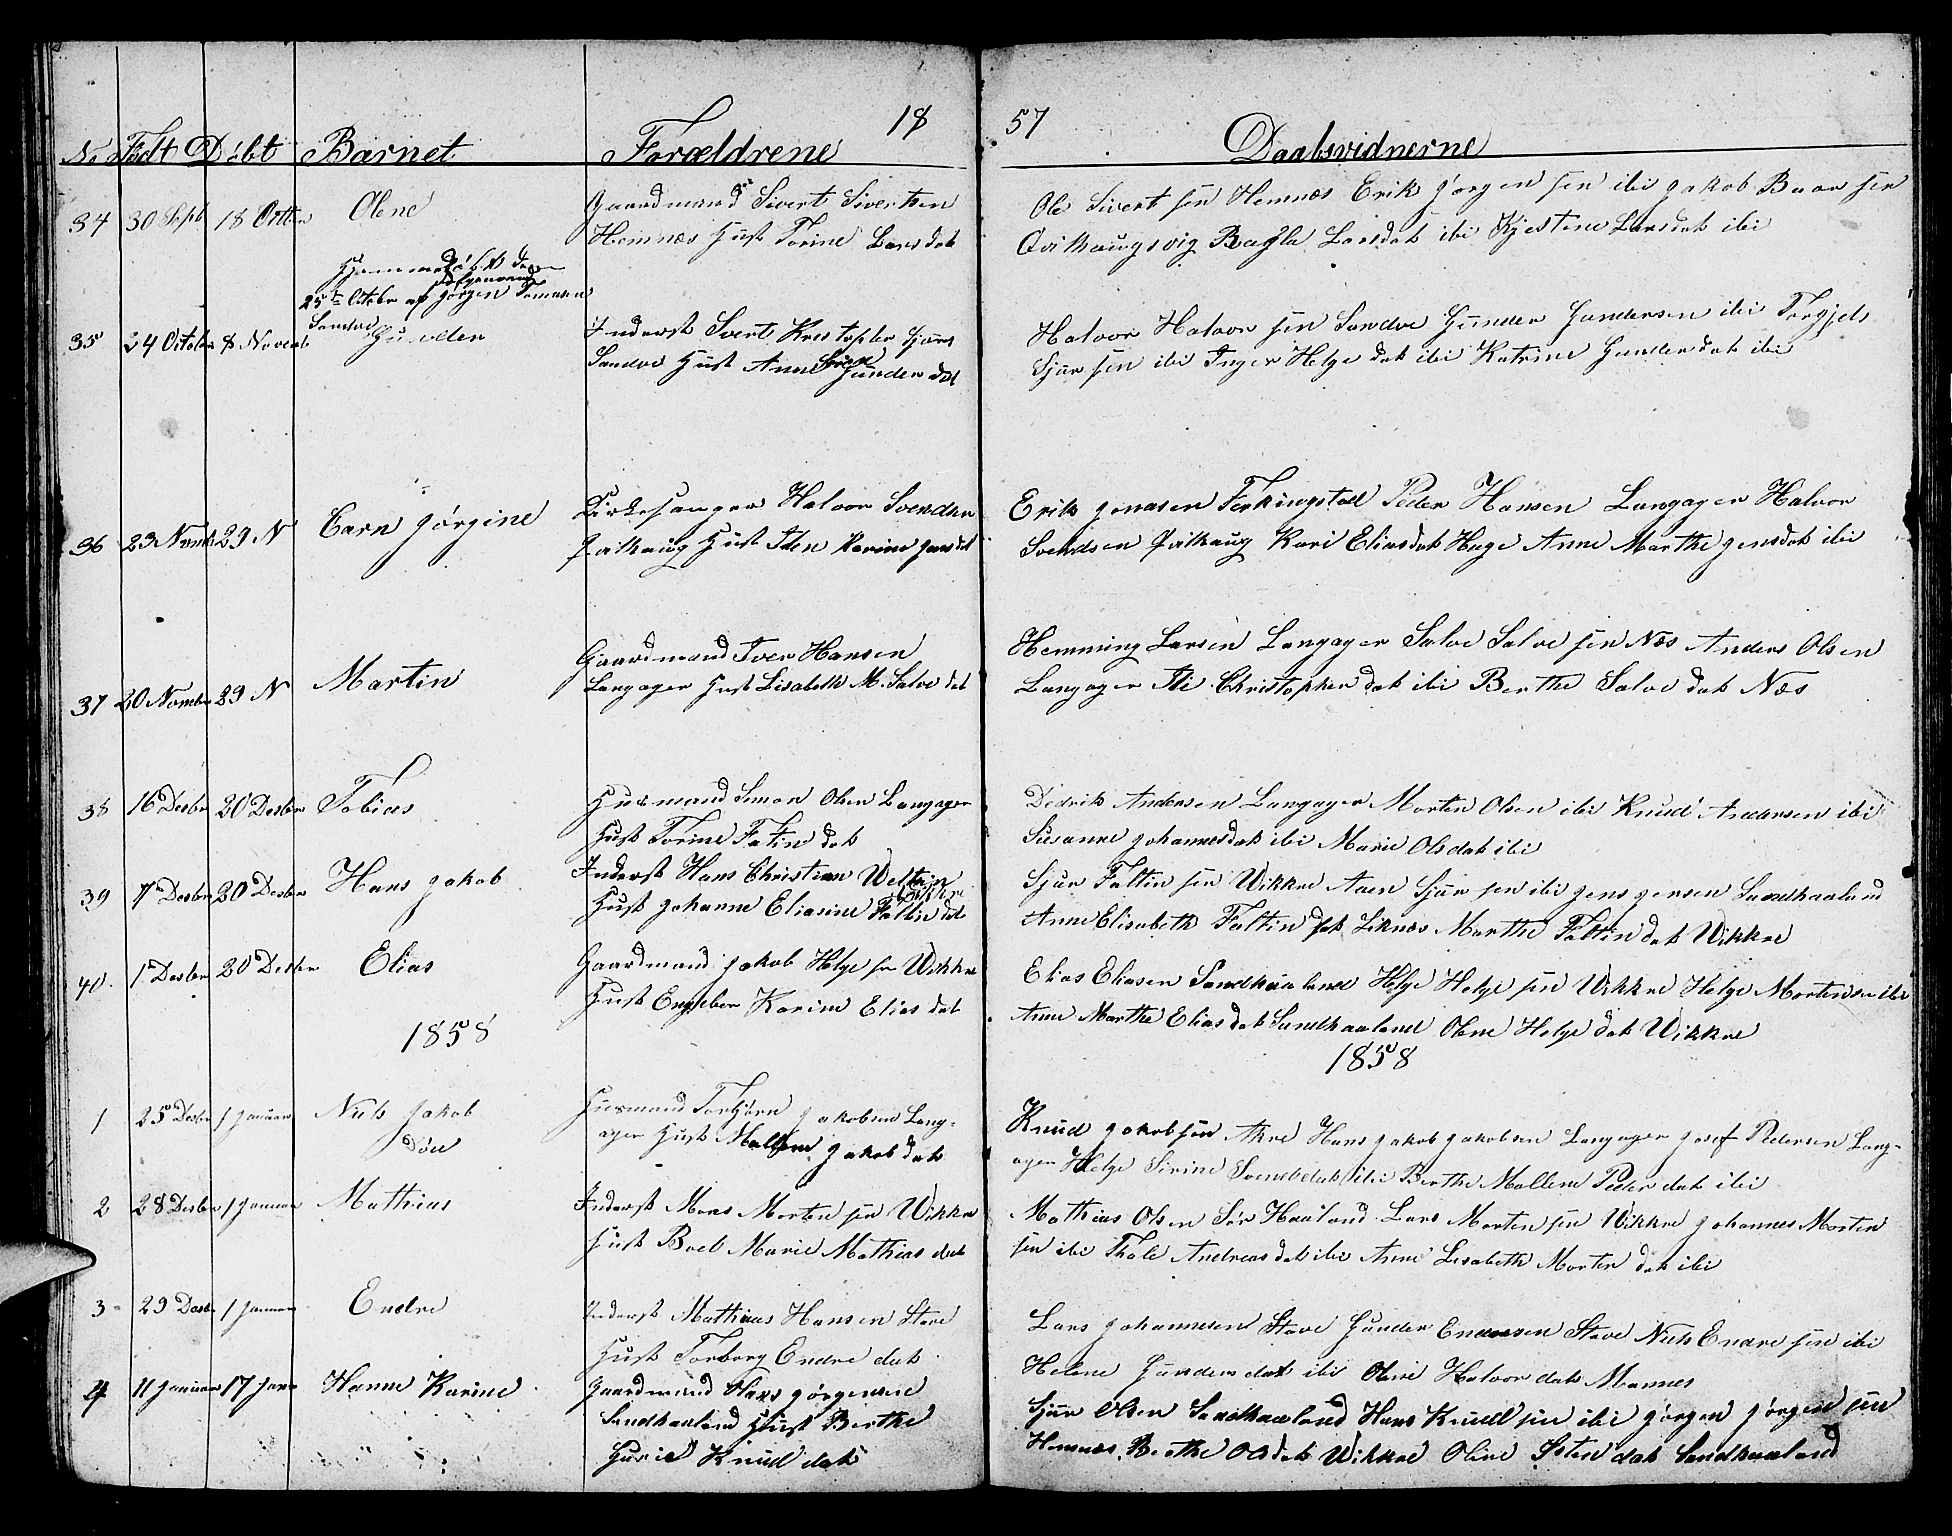 18 57
No Födt Döbt Barnet Forældrene Daabsvidnerne
34 30 Sept 18 Octbr Olene
Gaardmand Sivert Sivertsen
Hemnæs Hust Torine Larsdat
Ole Sivert sen Hemnæs Erik Jörgen sen ibi Jakob Baar sen
Qvilhaugsvig Larsdat ibi Kjestine Larsdat ibi
Hjemmedöbt den
25de Octobr af Jörgen
Sandve
35 24 Octobr 8 Novemb
Inderst Sivert Kristopher
Sandve Hust Anne Gunder dat
Halvor Halvor sen Sandve Gunder Gundersen ibi Torgjels
Sjur sen ibi Inger Helge dat ibi Katrine Gunder dat ibi
36 23 Novmb 29 N Carn Jörgine
Kirkesanger Halvor Svendsen
Qvilhaug Hust Iden Karine Jens dat
Erik Jonasen Ferkingstad Peder Hansen Langager Halvor
Svendsen Qvilhaug Kari Eliasdat Huge Anne Marthe Jensdat ibi
37 20 Novmbr 29 N Martin
Gaardmand Iver Hansen
Langager Hust Lisabeth M. Salve dat
Hemming Larsen Langager Salve Salve sen Næs Anders Olsen
Langager Christopher dat ibi Berthe Salve dat Næs
38 16 Desbr 20 Desbr Tobias
Husmand Simon Olsen Langager
Hust Torine Fatin dat
Didrik Andersen Langager Morten Olsen ibi Knud Andersen ibi
Susanne Johannesdat ibi Marie Olsdat ibi
39 7 Desbr 20 Desbr Hans Jakob
Inderst Hans Christian
Hust Johanne Eliasine Faltin dat
Sjur Faltin sen Wikkre Aaen Sjur sen ibi Jens Jensen Sandhaaland
Anne Elisabeth Faltin dat Liknæs Marthe Faltin dat Wikkre
40. 1 Desbr 20 Desbr Elias
Gaardmand Jakob Helge sn Wikkre
Hust Engeber Karine Elias dat
Elias Eliasen Sandhaaland Helge Helge sen Wikkre Helge Mortensen ibi
Anne Marthe Elias dat Sandhaaland Olene Helge dat Wikkre
1858 1858
1 25 Desbr 1 Januar Niels Jakob
Döu
Husmand Torbjörn Jakobsen Lang-
ager Hust Mallene Jakob dat
Knud Jakob sen Akre Hans Jakob Jakobsen Langager Josef Pedersen Lang-
ager Helge Sirine Svendsdat ibi Berthe Mallene Peder dat ibi
2 28 Desbr 1 Januar Mathias
Inderst Mons Morten sen Wikkre
Hust Boel Marie Mathias dat
Mathias Olsen Sör Haaland Lars Morten sen Wikkre Johannes Morten
sen ibi Thale Andreas dat ibi Anne Lisabeth Morten dat ibi
3 29 Desbr 1 Januar Endre
Inderst Mathias Hansen Stave
Hust Torborg Endre dat
Lars Johannesen Stave Gunder Endresen Stave Niels Endre sen ibi
Helene Gunders dat ibi Oline Halvor dat Mannes
4 11 Januar 17 Janr Hanne Karine
Gaardmand Hans Jörgensen
Sandhaaland Hust Berthe
Gurie Knud dat
Sjur Olsen Sandhaaland Hans Knud sen ibi Jörgen Jörgen sen
Hemnæs Berthe Olsdat Wikkre Oline Osten dat Sandhaaland